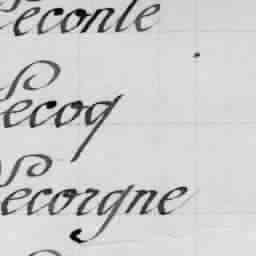 Leconte
Lecoq
Lecorgne